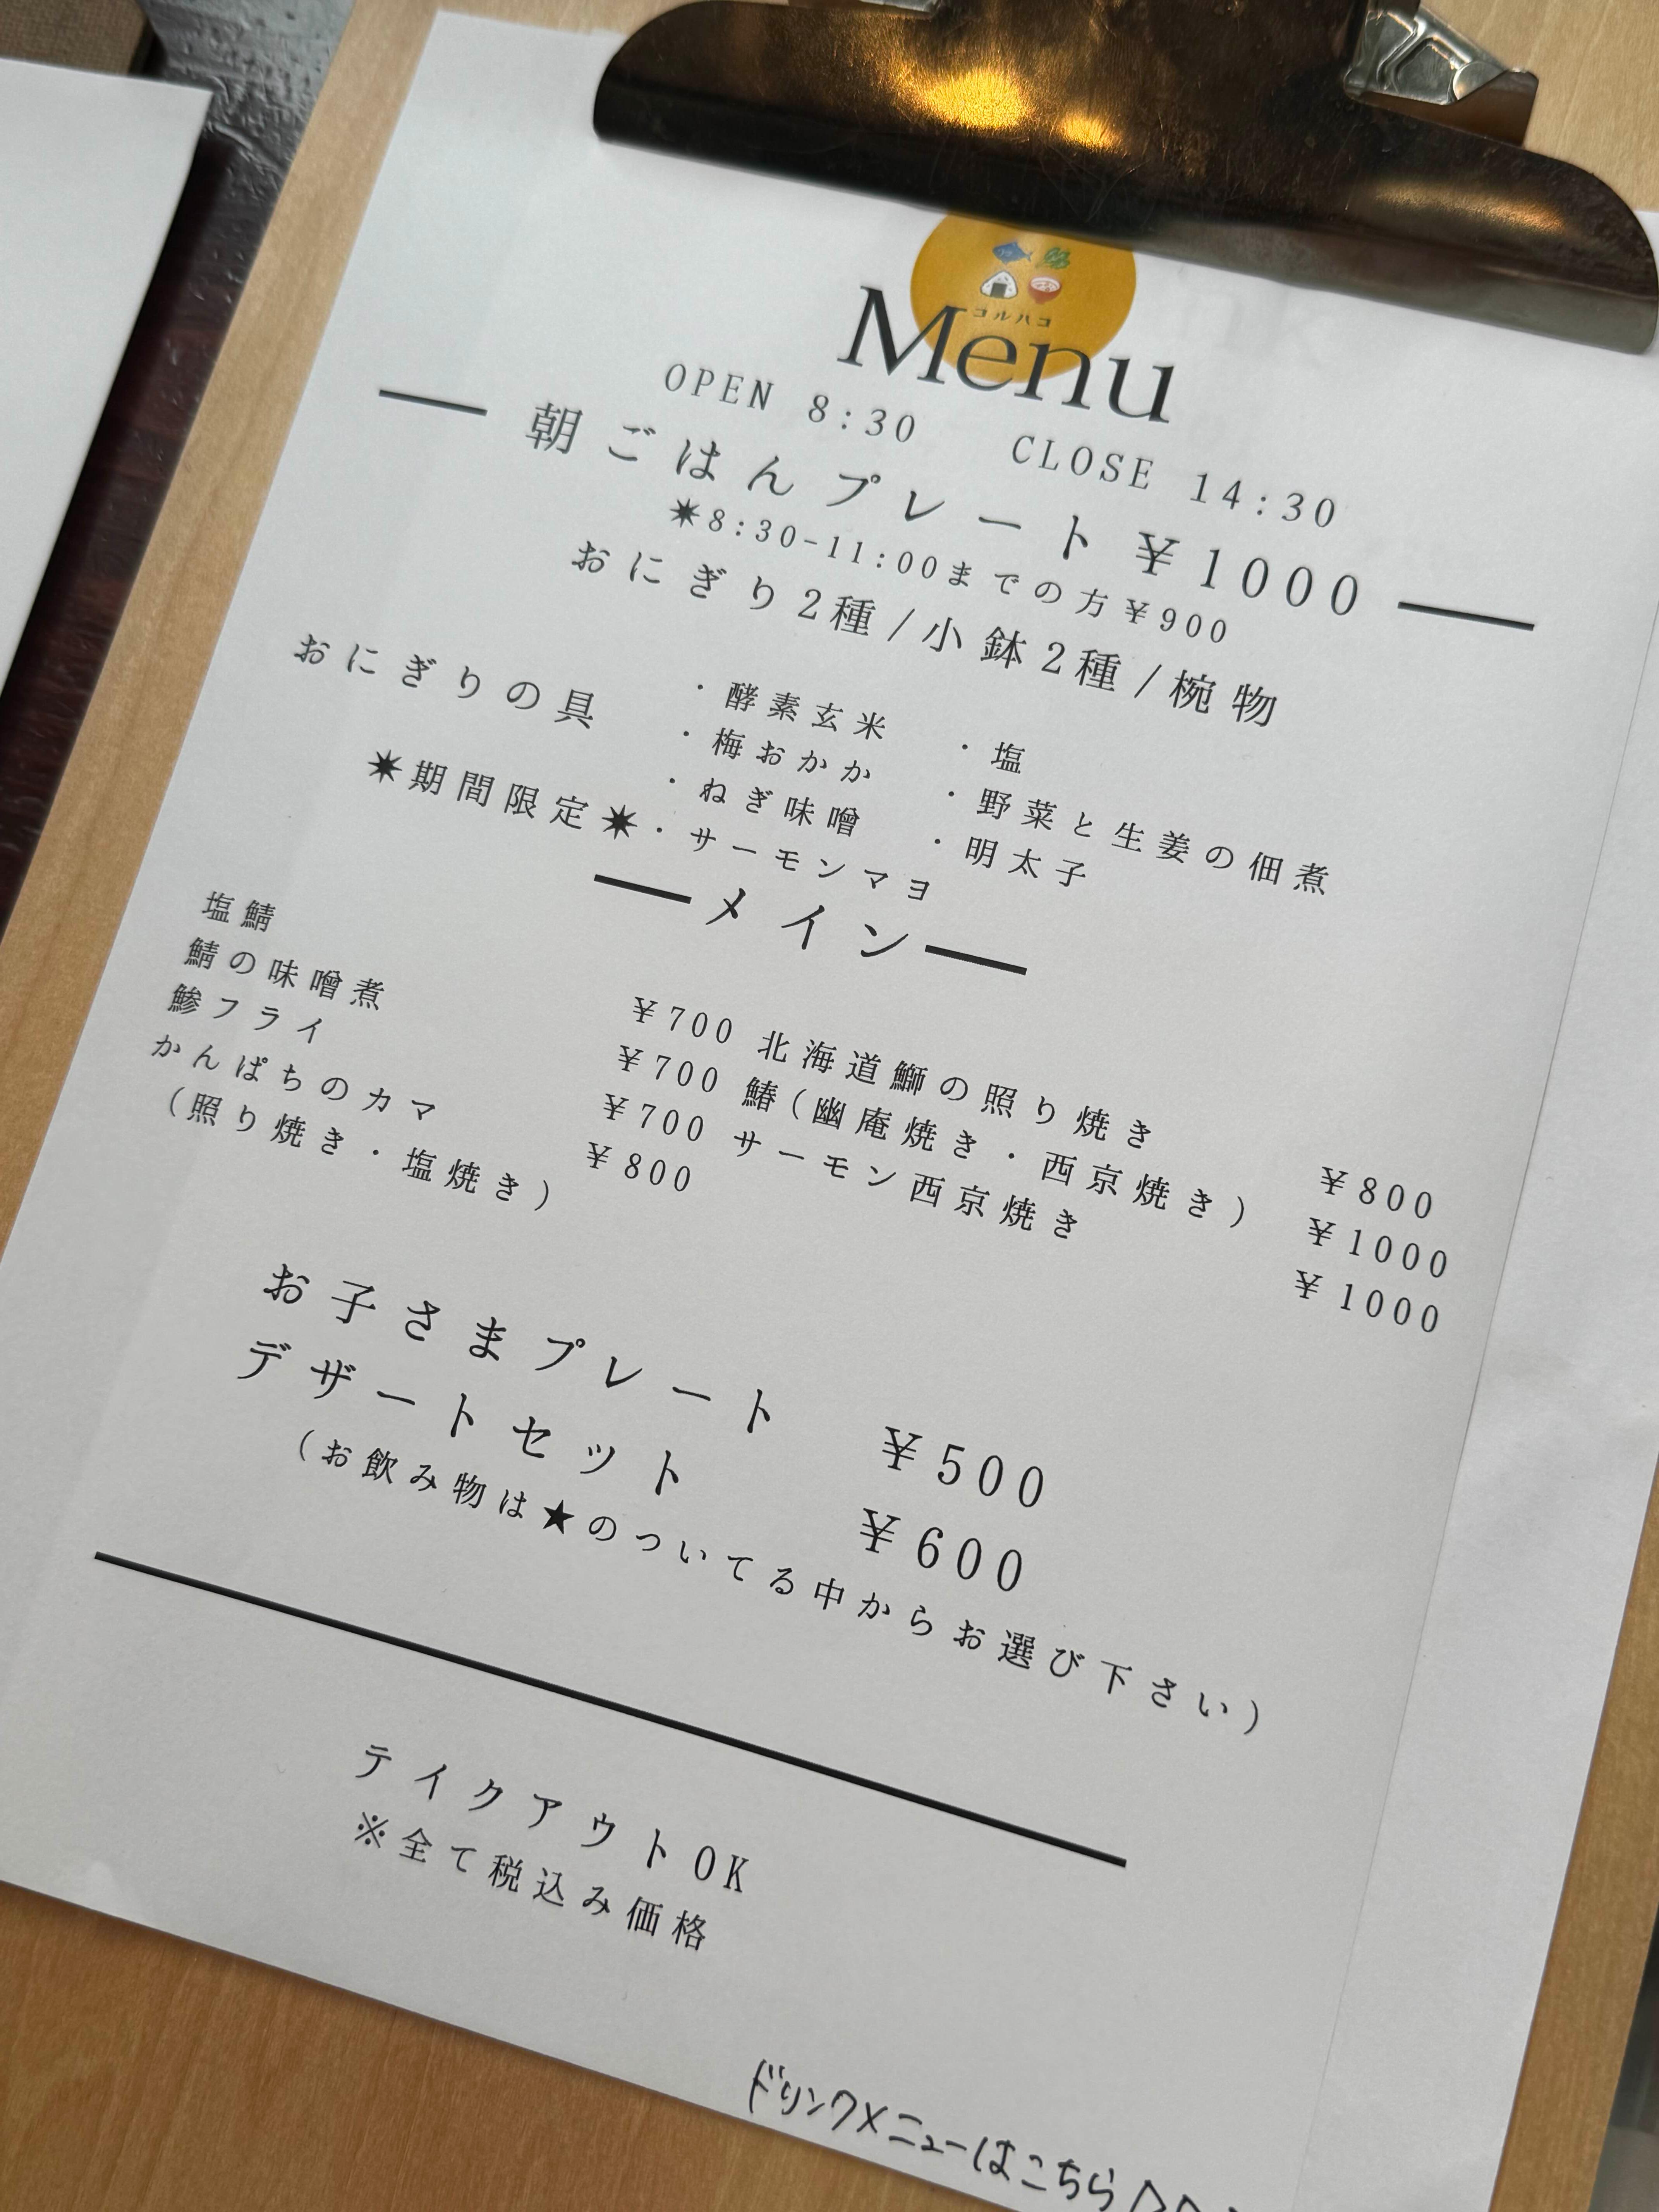 コルハコ
Menu
OPEN 8:30 CLOSE 14:30
朝ごはんプレート ¥1000
✷8:30-11:00までの方¥900
おにぎり2種/小鉢2種/椀物
おにぎりの具
・酵素玄米 ・塩
・梅おかか ・野菜と生姜の佃煮
・ねぎ味噌 ・明太子
✷期間限定✷・サーモンマヨ
メイン
塩鯖 ¥700
鯖の味噌煮 ¥700
鯵フライ ¥700
かんぱちのカマ ¥800
(照り焼き・塩焼き)
北海道鰤の照り焼き ¥800
鰆(幽庵焼き・西京焼き) ¥1000
サーモン西京焼き ¥1000
お子さまプレート ¥500
デザートセット ¥600
(お飲み物は★のついてる中からお選び下さい)
テイクアウトOK
※全て税込み価格
ドリンクメニューはこちら